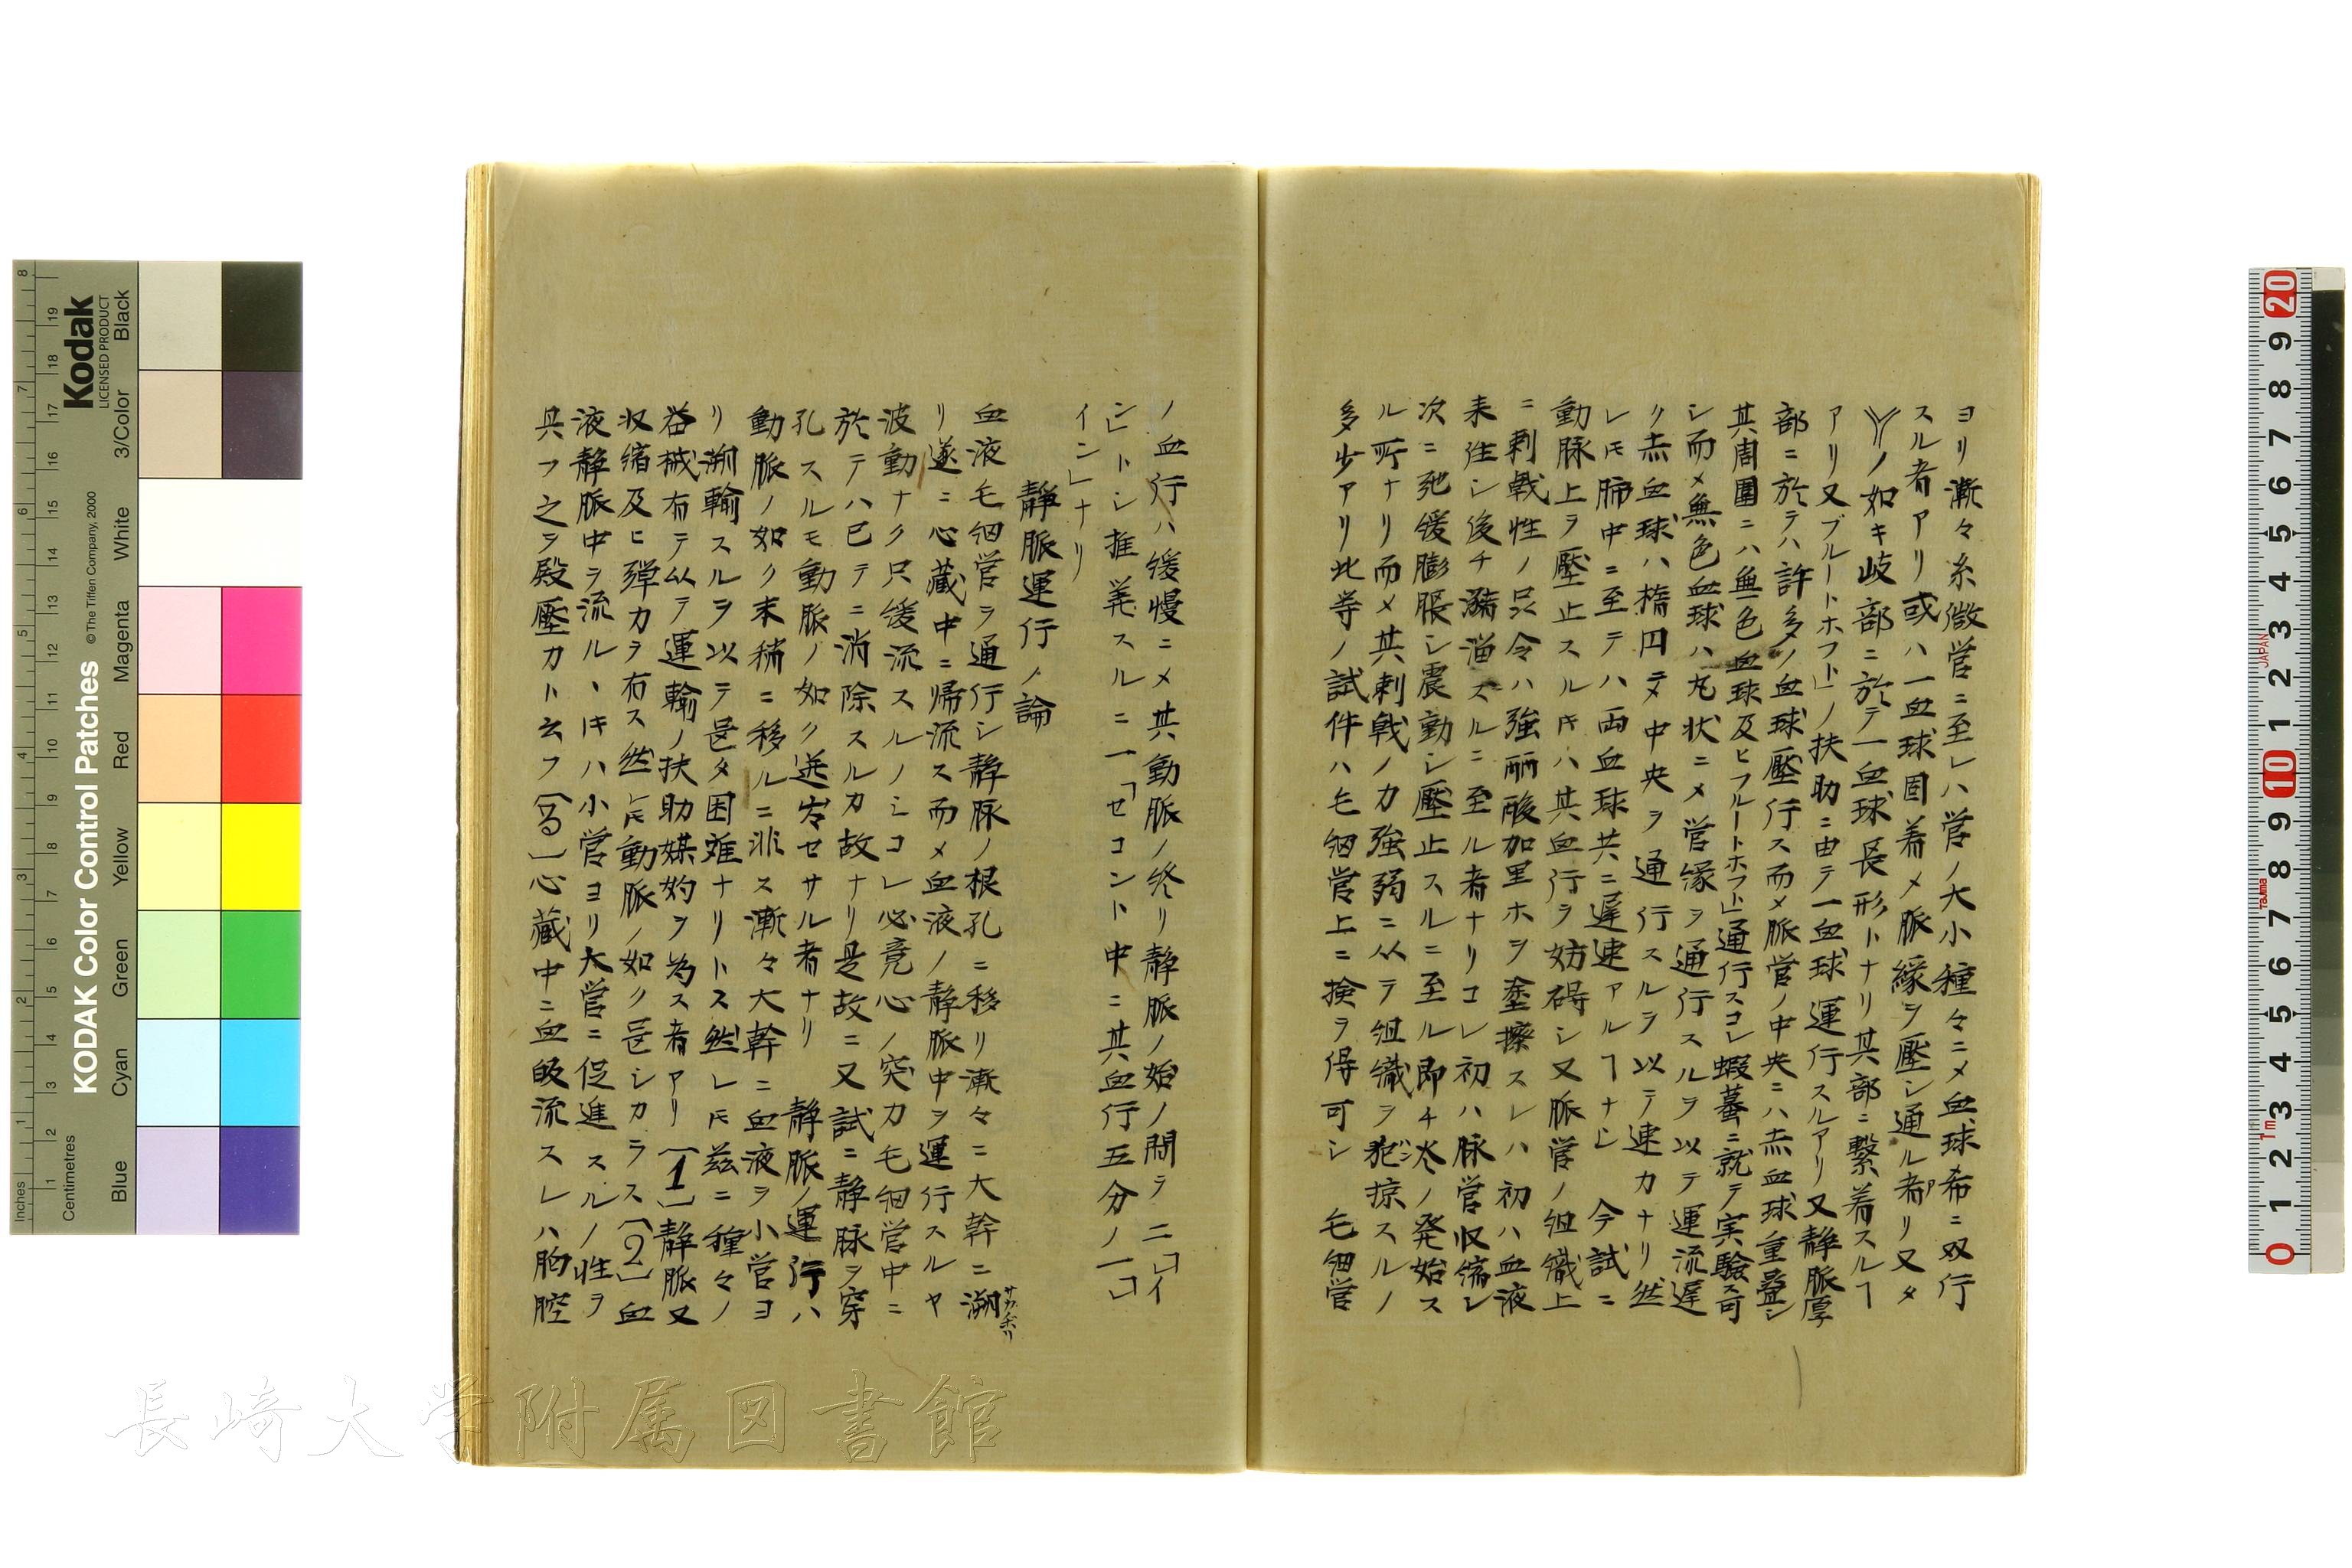 ヨリ漸々糸微営ニ至レハ営ノ大小種々ニメ血球希ニ双行
スル者アリ或ハ一血球固着メ脈縁ヲ壓シ通ル者アリ又タ
ノ如キ岐部ニ於テ一血球長形トナリ其部ニ繋着スルヿ
アリ又ブルートホフト」ノ扶助ニ由テ一血球運行スルアリ又静脈厚
部ニ於テハ許多ノ血球壓行ス而メ脈営ノ中央ニハ赤血球重畳シ
其周圍ニハ無色血球及ヒフルートホフト」通行スコレ蝦蟇ニ就テ実驗ス可
シ而メ無色血球ハ丸状ニメ営縁ヲ通行スルヲ以テ運流遅
ク赤血球ハ楕円ニテ中央ヲ通行スルヲ以テ速カナリ然
レ𪜈肺中ニ至テハ両血球共ニ遅速アルヿナし 今試ニ
動脉上ヲ壓止スルキハ其血行ヲ妨碍シ又脈営ノ組織上
ニ刺戟性ノ品令ハ強硝酸加里ホヲ塗擦スレハ初ハ血液
来往シ後チ瀦溜スルニ至ル者ナリコレ初ハ脉営収縮シ
次ニ弛緩膨脹シ震動シ壓止スルニ至ル即チ炎ノ発始ス
ル所ナリ而メ其刺戟ノ力強弱ニ以テ組織ヲ犯掠スルノ
多少アリ此等ノ試件ハ毛細営上ニ撿ヲ得可シ 毛細営
ノ血行ハ緩慢ニメ其動脈ノ終リ静脈ノ始ノ間ラ二「イ
ン」トシ推算スルニ一「セコント中ニ其血行五分ノ一「
イン」ナリ
静脈運行ノ論
血液毛細営ヲ通行シ静脉ノ根孔ニ移リ漸々ニ大幹ニ溯
サカボリ
リ遂ニ心藏中ニ帰流ス而メ血液ノ静脈中ヲ運行スルヤ
波動ナク只緩流スルノミコレ必竟心ノ突力毛細営中ニ
於テハ已テニ消除スルカ故ナリ是故ニ又試ニ静脉ヲ穿
孔スルモ動脈ノ如ク迸出セサル者ナリ 静脈ノ運行ハ
動脈ノ如ク末稍ニ移ルニ非ス漸々大幹ニ血液ヲ小営ヨ
リ溯輸スルヲ以テ是タ困難ナリトス然レ𪜈茲ニ種々ノ
器械有テ以テ運輸ノ扶助媒妁ヲ為ス者アリ〔1〕静脈又
収縮及ヒ弾力ヲ有ス然レ𪜈動脈ノ如ク甚シカラス〔2〕血
液静脈中ヲ流ルヽキハ小営ヨリ大営ニ促進スルノ性ヲ
具フ之ヲ殿壓力ト云フ〔3〕心藏中ニ血吸流スレハ胸腔